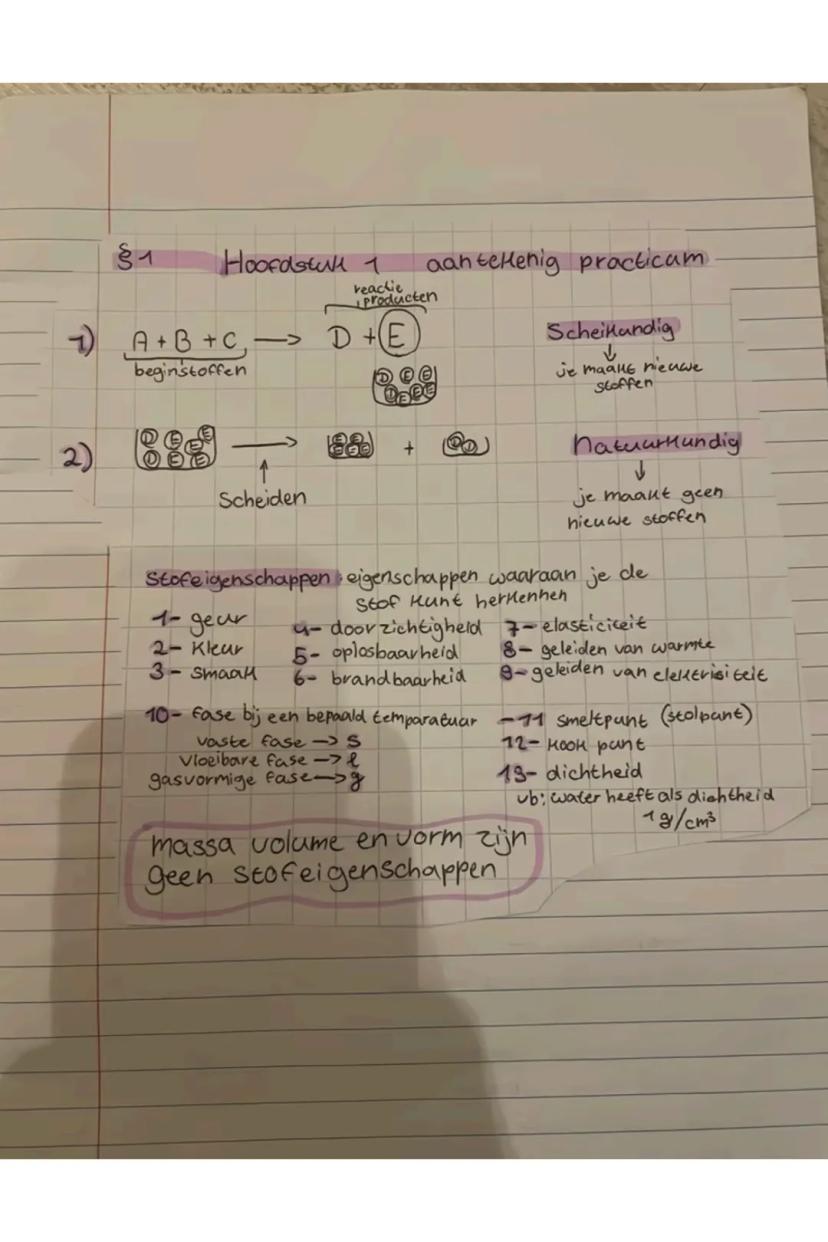 §1 Hoofdstuk 1 aantekenig practicum
reactie
producten
1) A + B + C → D + E
beginstoffen
Scheikundig
↓
je maakt nieuwe
stoffen
D E E
D E E E
2) D E E D E E → E E E E E + D D
↑
Scheiden
Natuurkundig
↓
je maakt geen
nieuwe stoffen
Stofeigenschappen: eigenschappen waaraan je de
stof kunt herkenhen
1- geur
2- kleur
3- smaak
4- doorzichtigheid
5- oplosbaarheid
6- brandbaarheid
7- elasticiteit
8- geleiden van warmte
9- geleiden van elektrisiteit
10- fase bij een bepaald temparatuur
vaste fase → s
vloeibare fase → l
gasvormige fase → g
-11 smeltpunt (stolpunt)
12- kook punt
13- dichtheid
vb: water heeft als dichtheid
1 g/cm³
massa volume en vorm zijn
geen stofeigenschappen